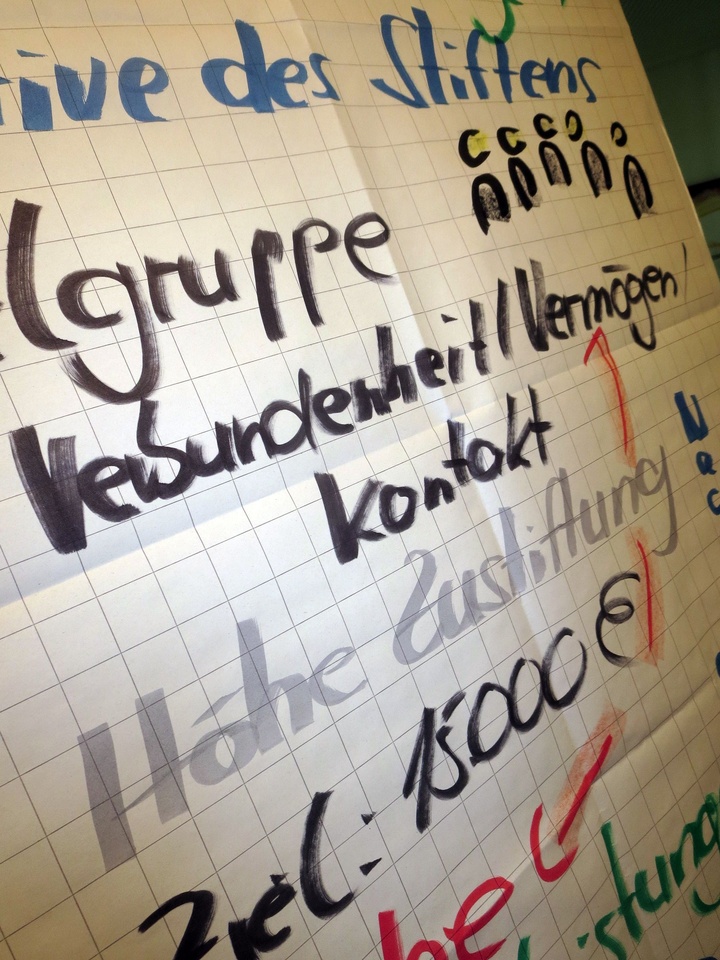 ive des Stiftens
lgruppe
Verbundenheit / Vermögen
Kontakt
Höhe Zustiftung
Ziel: 15000 €